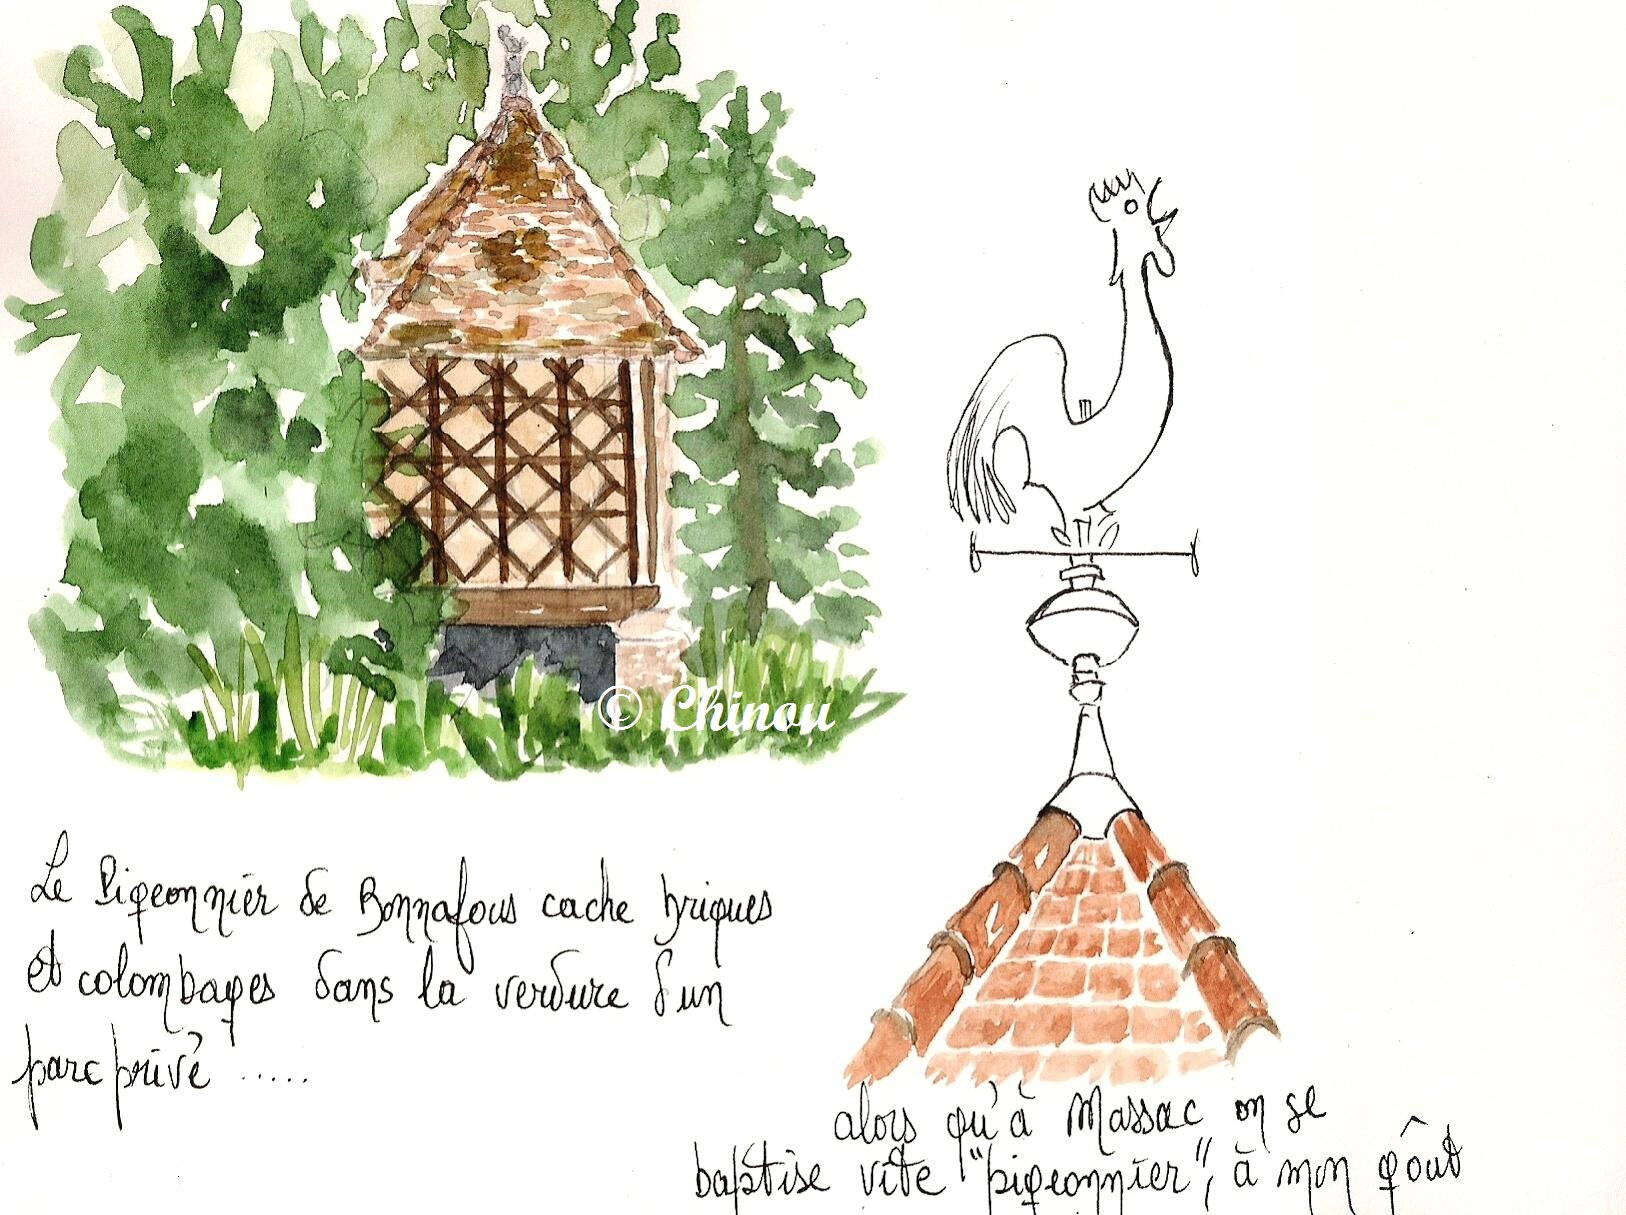 © Chinou
Le Pigeonnier de Bonnafous cache briques
et colombages dans la verdure d'un
parc privé .....
alors qu'à Massac on se
baptise vite "pigeonnier", à mon goût